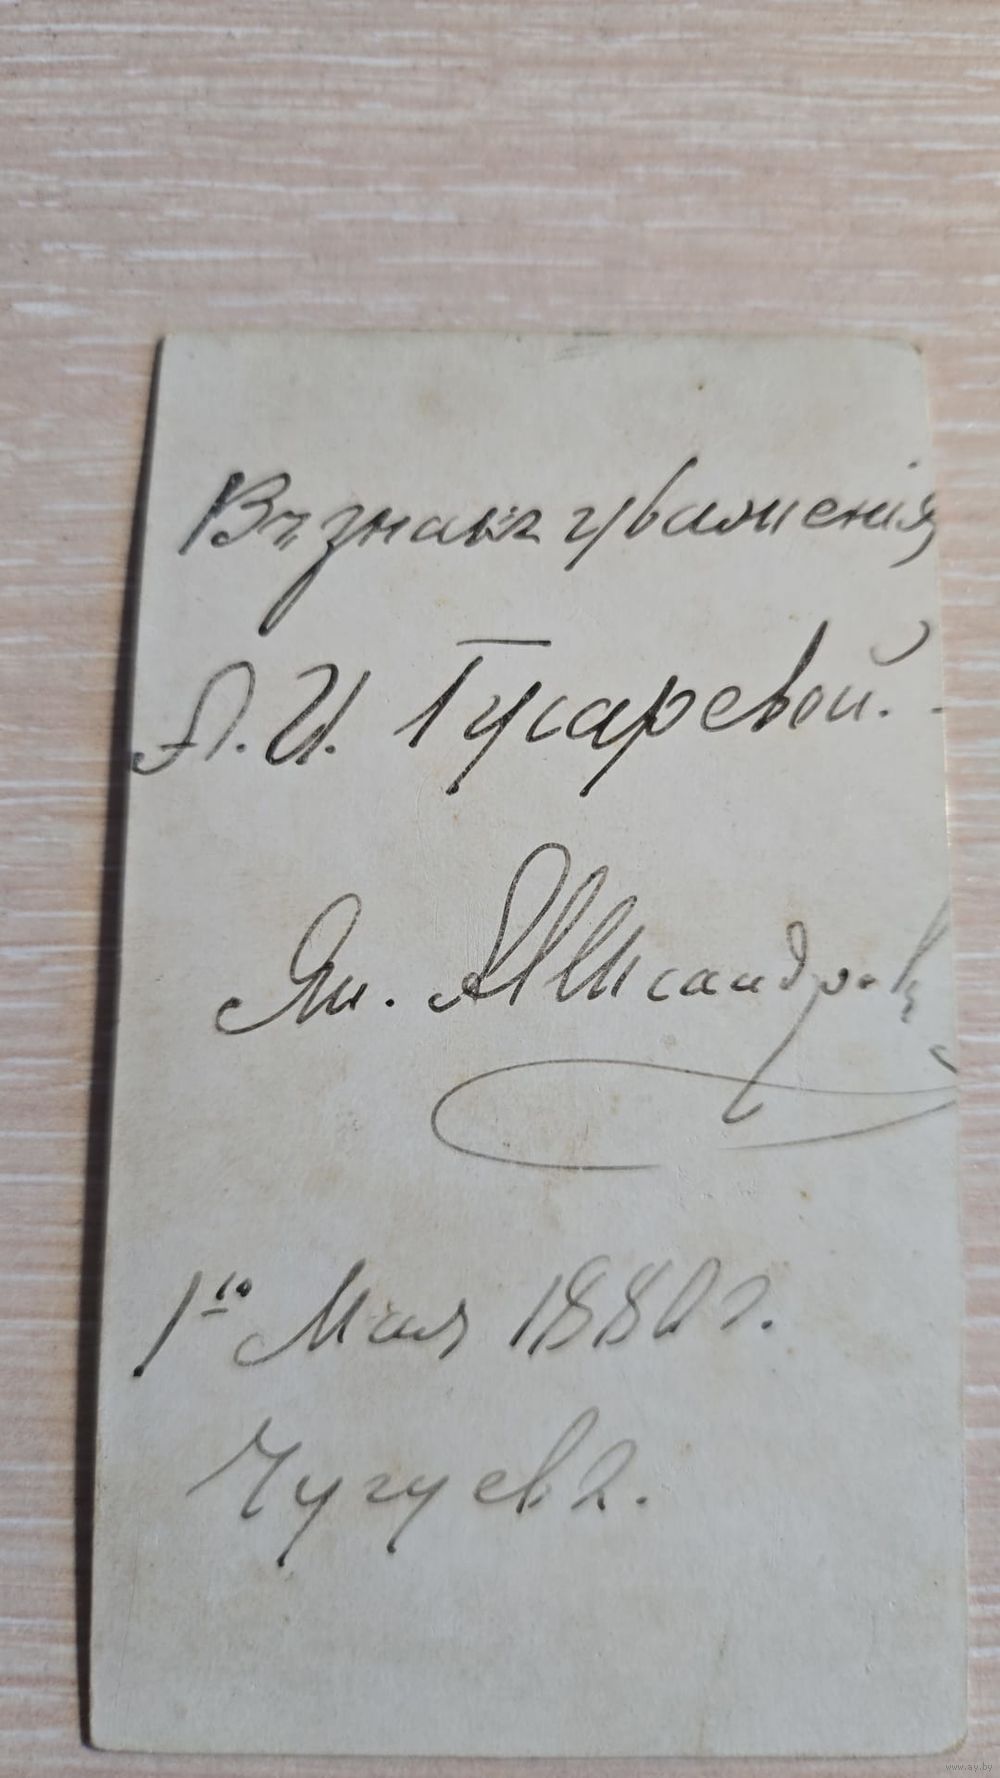 Въ знакъ уваженія
А. И. Гусаревой.
Ян. Александровъ
1го Мая 1880 г.
Чугуевъ.
www.ay.by